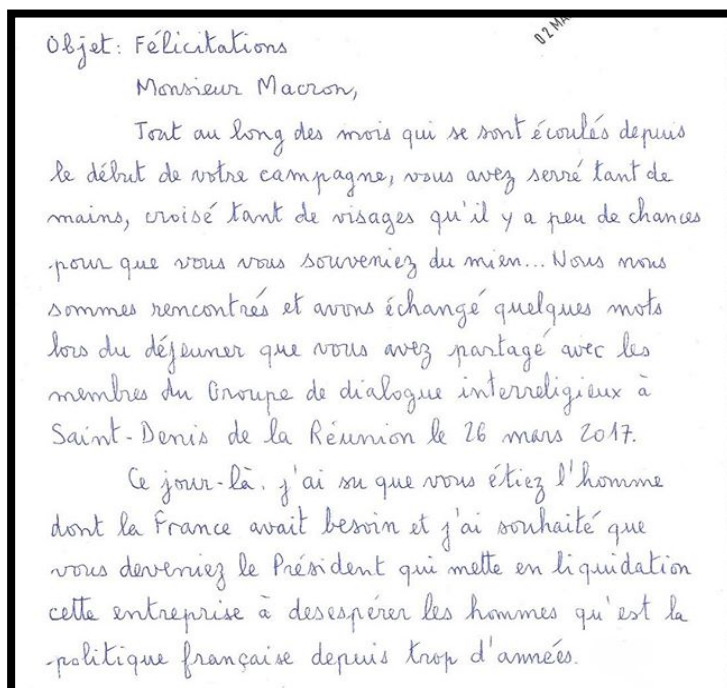 Objet: Félicitations
02 MA
Monsieur Macron,
Tout au long des mois qui se sont écoulés depuis
le début de votre campagne, vous avez serré tant de
mains, croisé tant de visages qu'il y a peu de chances
pour que vous vous souveniez du mien... Nous nous
sommes rencontrés et avons échangé quelques mots
lors du déjeuner que vous avez partagé avec les
membres du Groupe de dialogue interreligieux à
Saint-Denis de la Réunion le 26 mars 2017.
Ce jour-là, j'ai su que vous étiez l'homme
dont la France avait besoin et j'ai souhaité que
vous deveniez le Président qui mette en liquidation
cette entreprise à desespérer les hommes qu'est la
politique française depuis trop d'années.